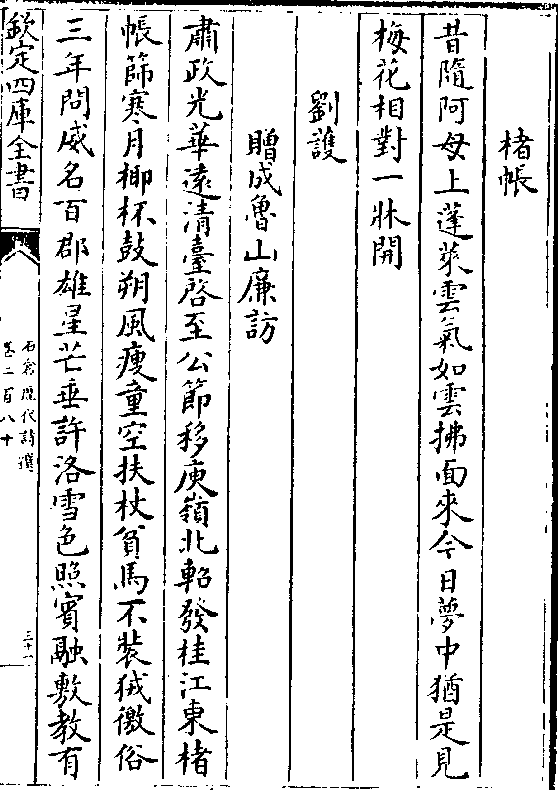 楮帳
昔隨阿母上蓬萊雲氣如雲拂面來今日夢中猶是見
梅花相對一牀開
劉䕶
贈成魯山廉訪
肅政光華遠清臺啓至公節移庾嶺北軺發桂江東楮
帳篩寒月椰杯鼓朔風瘦童空扶杖貧馬不裝狨徼俗
三年問威名百郡雄星芒垂許洛雪色照賓融敷教有
欽定四庫全書
石倉歷代詩選
卷二百八十
三十一